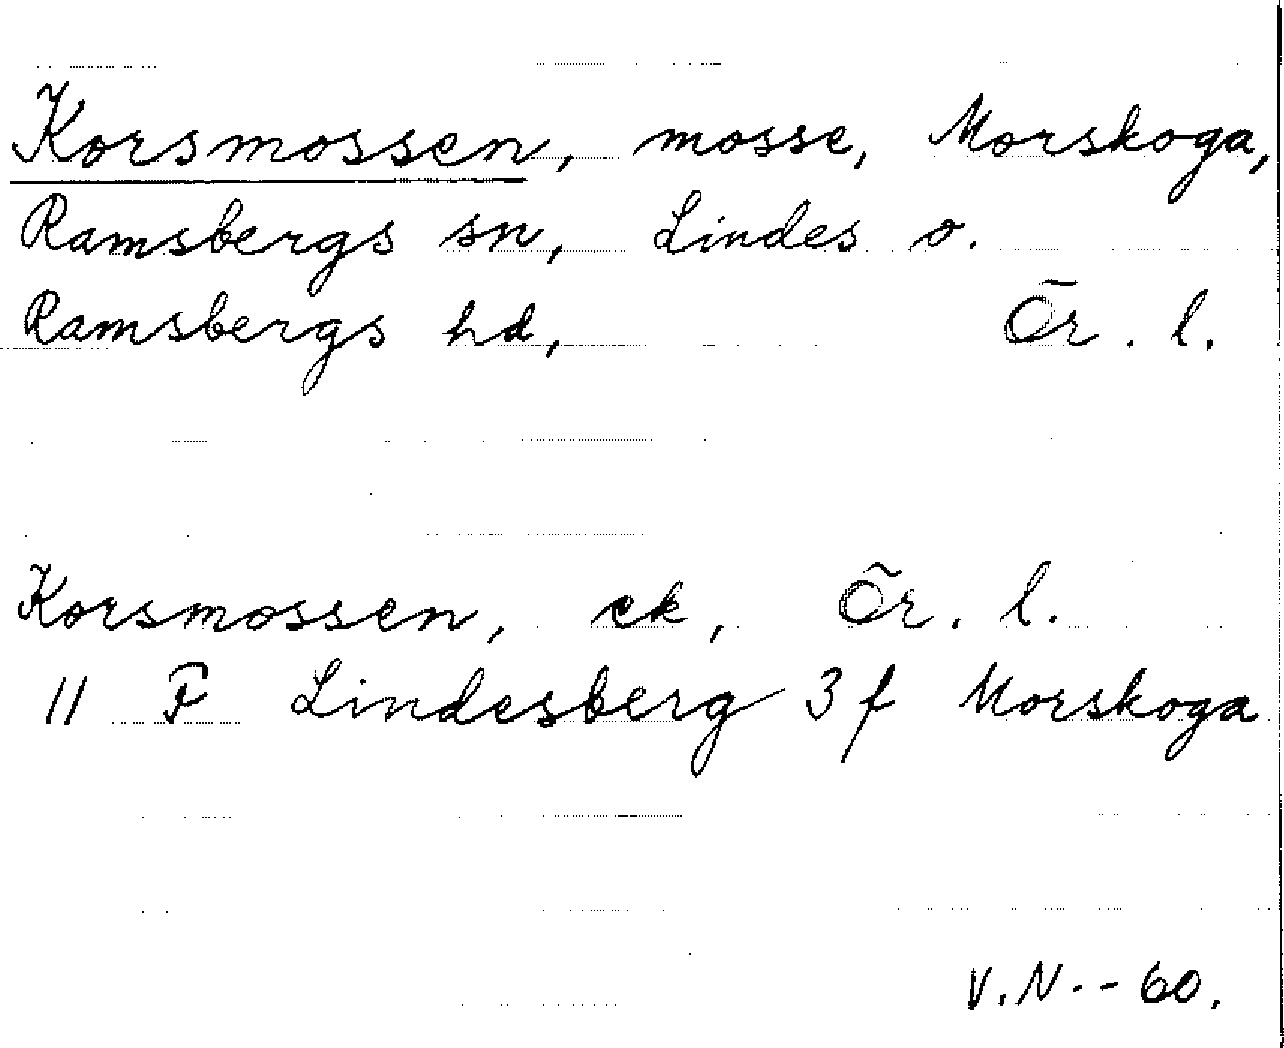 Korsmossen, mosse, Morskoga,
Ramsbergs sn, Lindes o.
Ramsbergs hd, Ör. l.
Korsmossen, ek, Ör. l.
11 F Lindesberg 3 f Morskoga
V.N.-60.